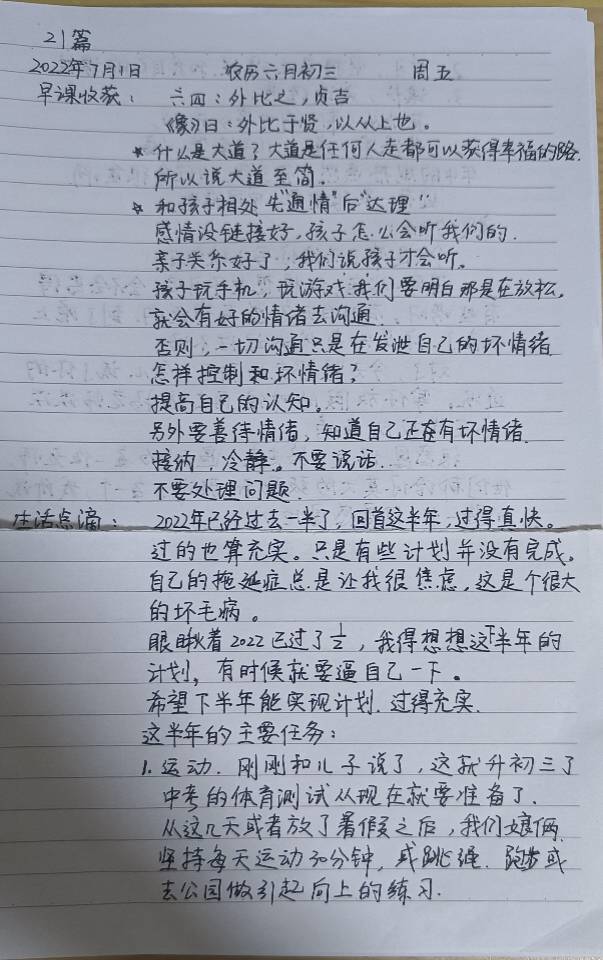 21篇
2022年7月1日 农历六月初三 周五
早课收获: 六四:外比之,贞吉
《象》曰:外比于贤,以从上也。
* 什么是大道?大道是任何人走都可以获得幸福的路.
所以说大道至简.
* 和孩子相处 先"通情"后"达理"!
感情没链接好,孩子怎么会听我们的.
亲子关系好了,我们说孩子才会听。
孩子玩手机,玩游戏.我们要明白那是在放松。
就会有好的情绪去沟通.
否则,一切沟通只是在发泄自己的坏情绪.
怎样控制和坏情绪?
提高自己的认知。
另外要善待情绪,知道自己正在有坏情绪.
接纳.冷静。不要说话.
不要处理问题.
生活点滴: 2022年已经过去一半了,回首这半年,过得真快。
过的也算充实。只是有些计划并没有完成。
自己的拖延症总是让我很焦虑,这是个很大
的坏毛病。
眼瞅着2022已过了1/2,我得想想这下半年的
计划,有时候就要逼自己一下。
希望下半年能实现计划.过得充实.
这半年的主要任务:
1.运动.刚刚和儿子说了,这就升初三了
中考的体育测试从现在就要准备了.
从这几天或者放了暑假之后,我们娘俩.
坚持每天运动30分钟,或跳绳.跑步或
去公园做引起向上的练习.